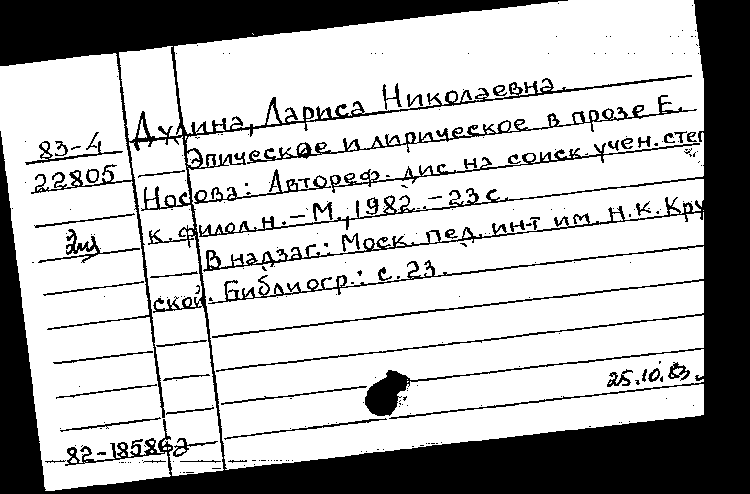 Дулина, Лариса Николаевна.
83-4
Эпическое и лирическое в прозе Е.
22805
Носова: Автореф. дис. на соиск. учен. степ
к. филол. н. - М., 1982. - 23 с.
В надзаг.: Моск. пед. ин-т им. Н.К. Кру
ской. Библиогр.: с. 23.
25.10.83
82-18586а